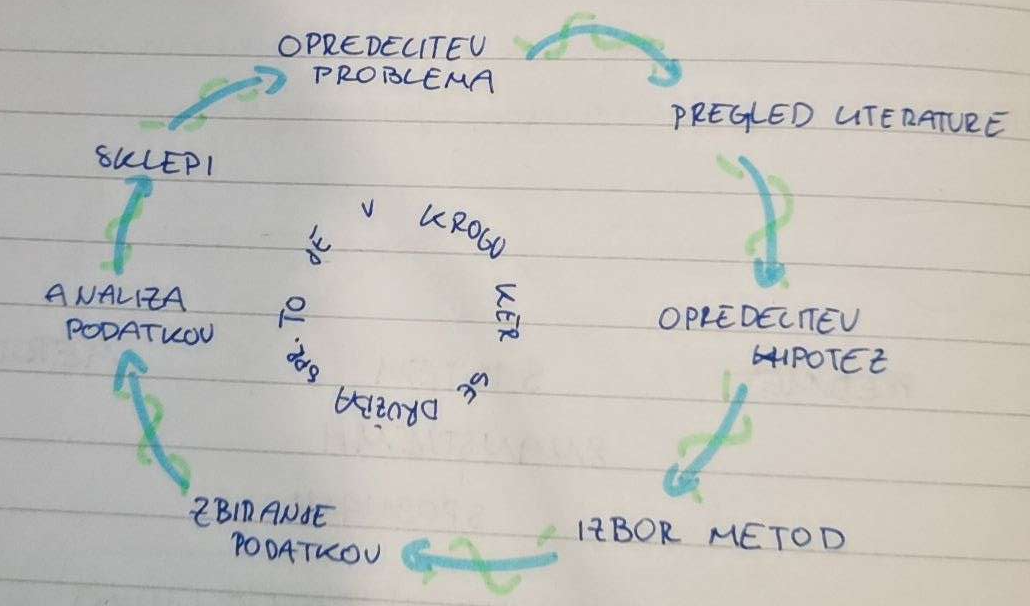 OPREDELITEV
PROBLEMA
PREGLED LITERATURE
OPREDELITEV
HIPOTEZ
IZBOR METOD
ZBIRANJE
PODATKOV
ANALIZA
PODATKOV
SKLEPI
TO JE V KROGU KER SE DRUŽBA SPR.